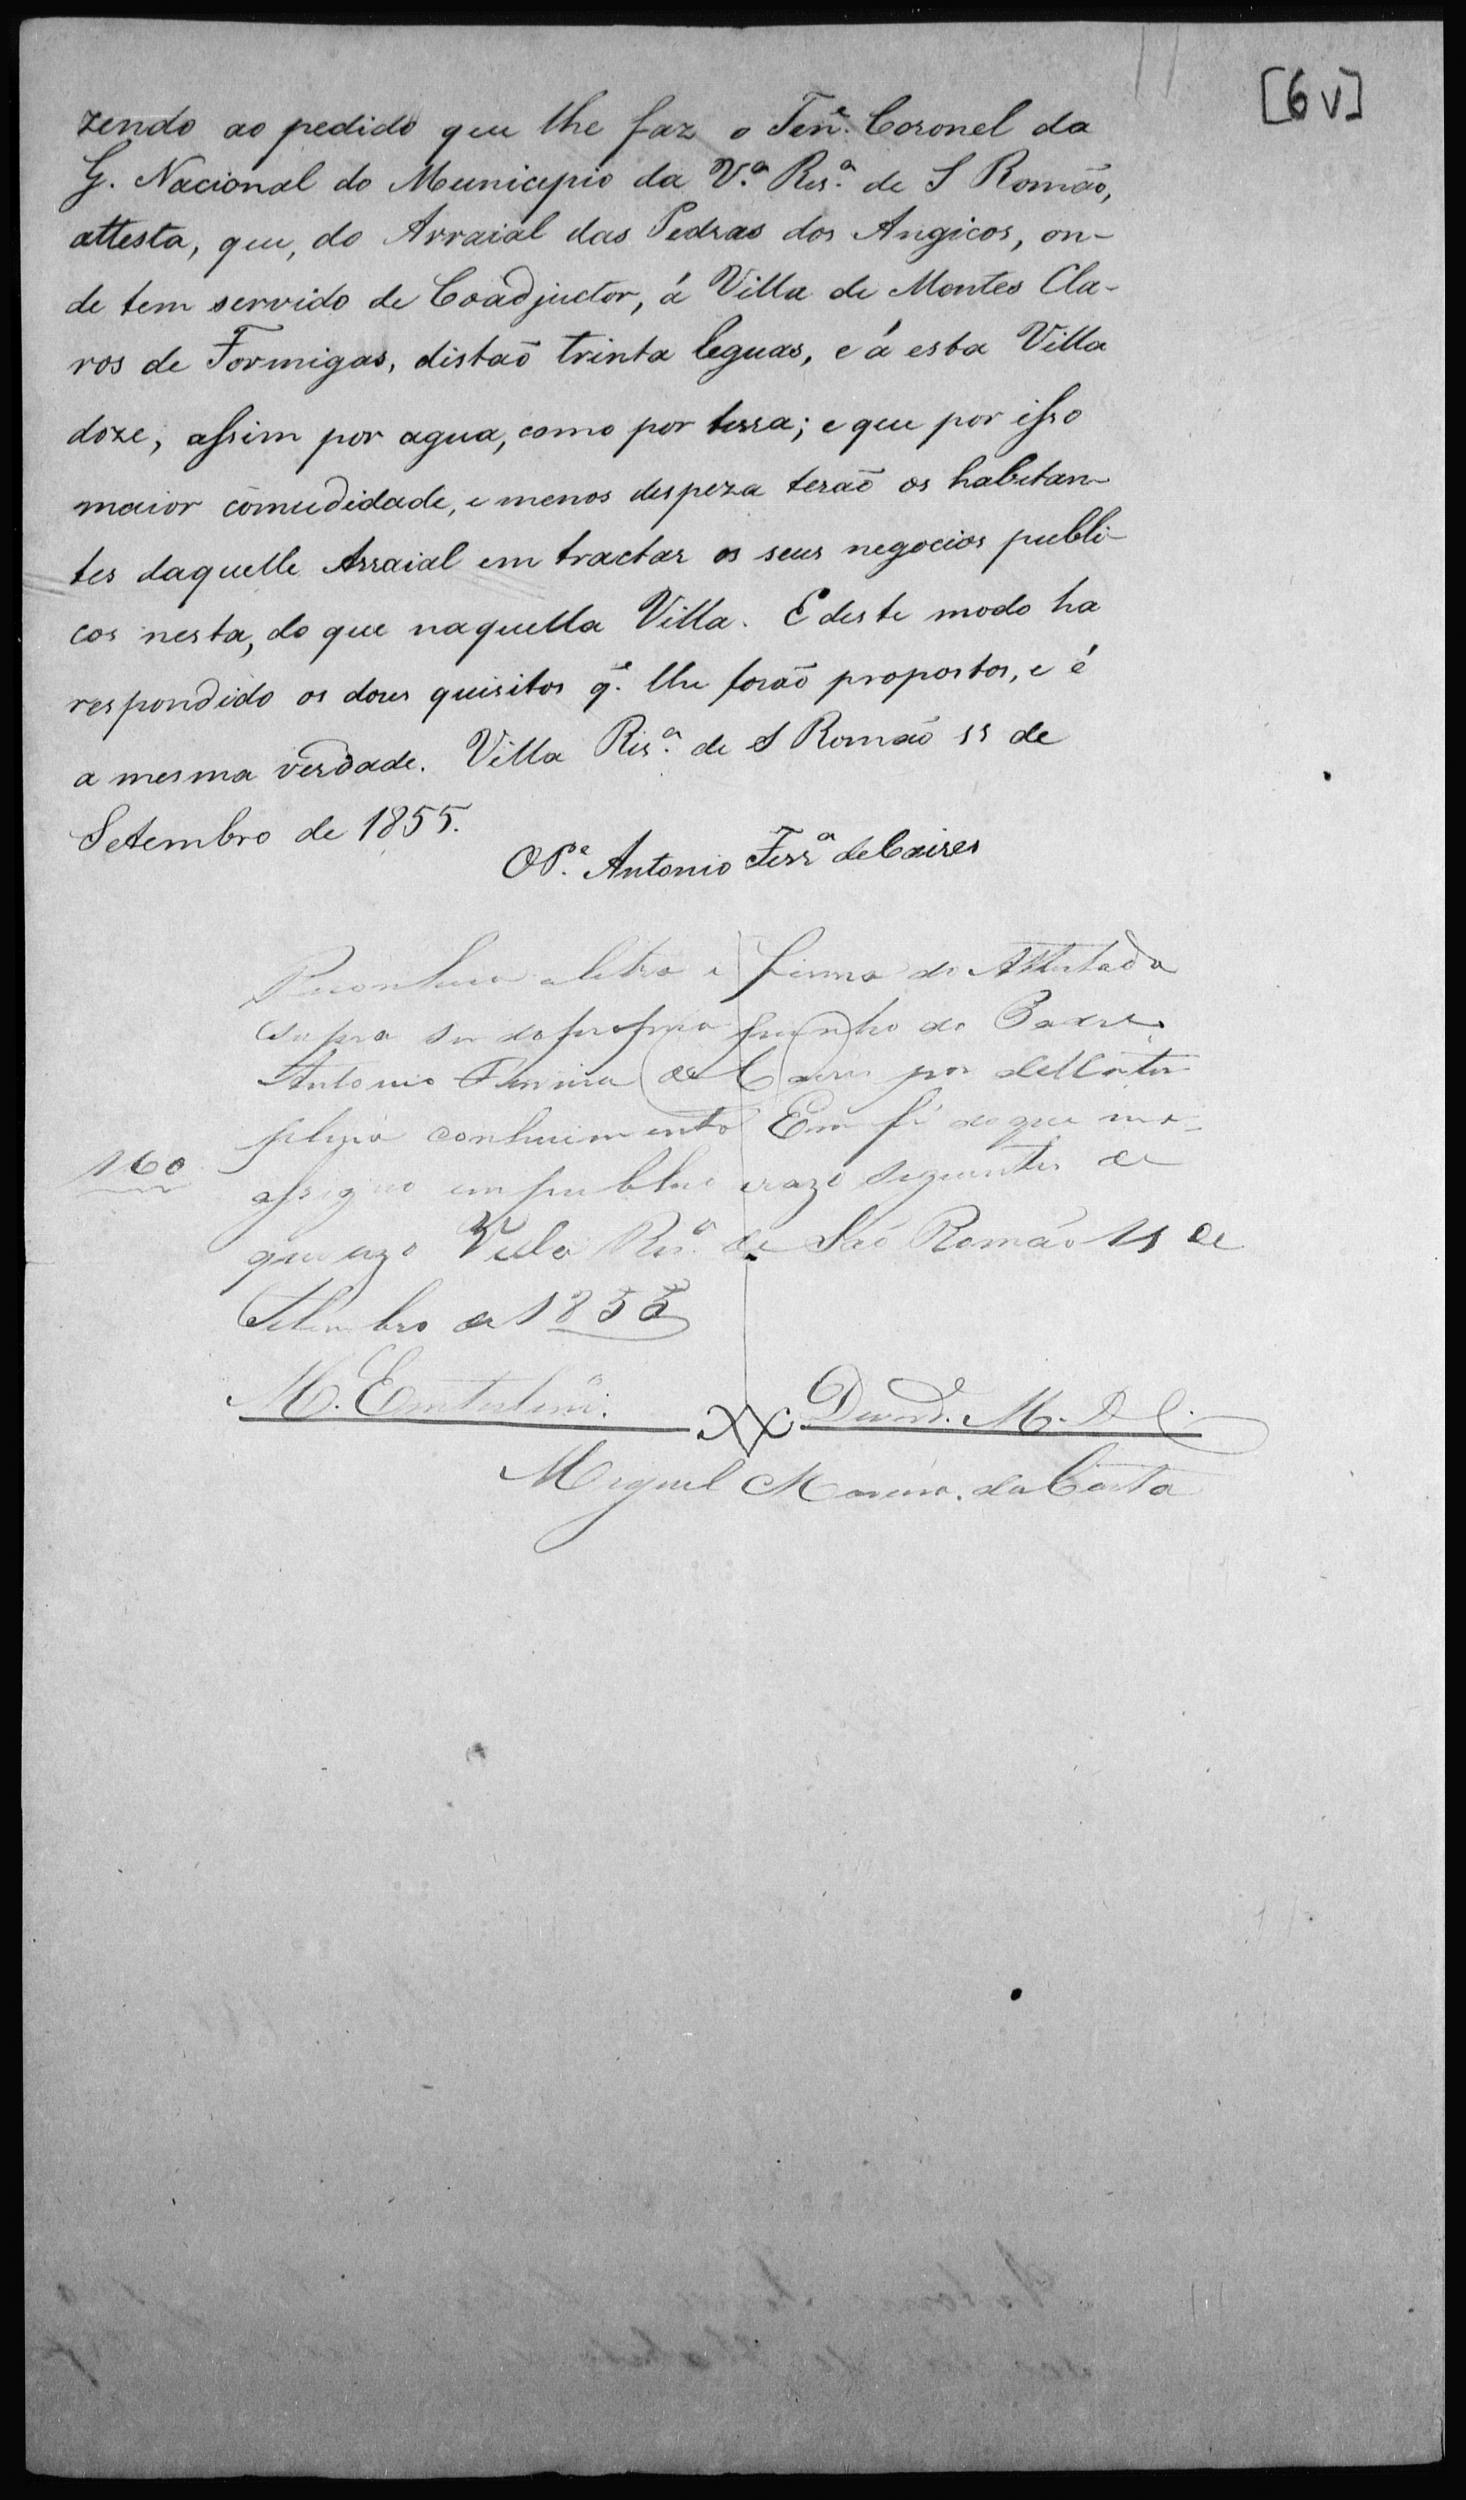 [6 v]
zendo ao pedido que lhe faz o Ten.e Coronel da
G. Nacional do Municipio da V.a Ris.a de S Romão,
attesta, que, do Arraial das Pedras dos Angicos, on-
de tem servido de Coadjuctor, á Villa de Montes Cla-
ros de Formigas, distaõ trinta leguas, e á esta Villa
doze, assim por agua, como por terra; e que por isso
maior cõmudidade, e menos despeza teraõ os habitan-
tes daquelle Arraial em tractar os seus negocios publi-
cos nesta, do que naquella Villa. E deste modo ha
respondido os dous quisitos q.e lhe foraõ propostos, e é
a mesma verdade. Villa Ris.a de S Romaõ 11 de
Setembro de 1855.
O P.e Antonio Ferr.a de Caires
Reconheco a letra e firma do Attestado
supra ser do proprio punho do Padre
Antonio Ferreira de Caires por delle ter
pleno conhecimento Em fé do que me
160
assigno em publico e razo seguintes de
que uzo Villa Ris.a de Saõ Romão 11 de
Setembro de 1855
M. Em
Miguel da Costa